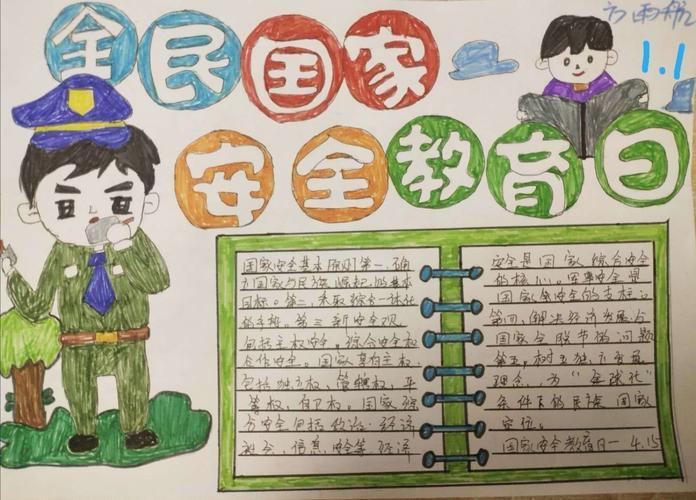 全民国家
1.1
安全教育日
国家安全基本原则第一,确
立国家与民族崛起的基本
目标。第二,采取综合一体化
的手段。第三新安全观
包括主权安全。综合安全和
合作安全。国家基本主权
包括独立权、管辖权、平
等权、自卫权。国家综
合安全包括政治、经济
社会、信息安全等,经济
安全是国家综合安全
的核心。军事安全是
国家
安全的支柱
第四,解决经济发展
国家 的问题
第五,树立 发展
理念、为“全球化”
条件下的 国家
定位。
国家安全教育日一4.15